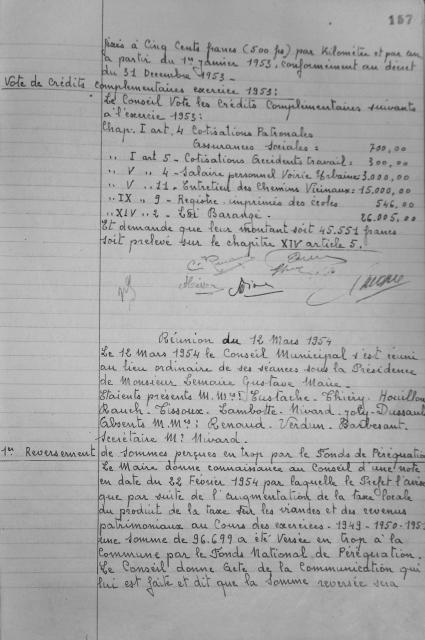 157
frais à Cinq Cents francs (500 frs) par Kilomètre et par an
à partir du 1er Janvier 1953, conformément au décret
du 31 Decembre 1953 -
Vote de Crédits complimentaires exercice 1953:
Le Conseil Vote les Crédits Complimentaires suivants
à l'exercice 1953:
Chap. I art. 4 Cotisations Patronales
Assurances Sociales : 700,00
" I art 5 - Cotisations Accidents travail : 300,00
" V " 4 - Salaire personnel Voirie Urbaine: 3.000,00
" V " 11 - Entretien des Chemins Vicinaux: 15.000,00
" IX " 9 - Registre. imprimés des écoles 546.00
" XIV " 2 - Loi Barangé - 26.005,00
Et demande que leur montant soit 45.551 francs
soit prelevé sur le chapitre XIV article 5.
Réunion du 12 Mars 1954
Le 12 Mars 1954 le Conseil Municipal s'est réuni
au lieu ordinaire de ses séances sous la Présidence
de Monsieur Lemaire Gustave Maire.
Etaient presents M.Mrs Eustache. Thiéry. Houillon
Rauch. Tissoux. Lambotte. Mivard. Joly. Dussault
Absents M.Mrs: Renaud. Verdun. Barbesant.
Secrétaire Mr Mivard.
1er Reversement de sommes perçues en trop par le Fonds de Péréquation
Le Maire donne connaissance au Conseil d'une note
en date du 22 Février 1954 par laquelle le Prefet l'avise
que par suite de l'augmentation de la taxe locale
du produit de la taxe sur les viandes et des revenus
patrimoniaux au Cours des exercices - 1949 - 1950 - 195
une somme de 96.699 a été Versée en trop à la
Commune par le Fonds National de Péréquation.
Le Conseil donne Acte de la Communication qui
lui est faite et dit que la somme reversée sera